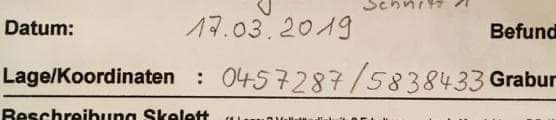 Schnitt 1
Datum: 17.03.2019 Befund
Lage/Koordinaten : 0457287/5838433 Grabur
Beschreibung Skelett